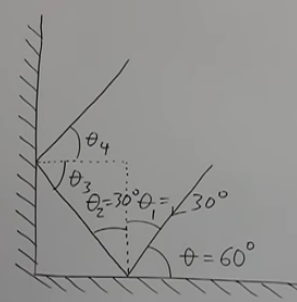 θ₄
θ₃
θ₂=30° θ₁= 30°
θ=60°